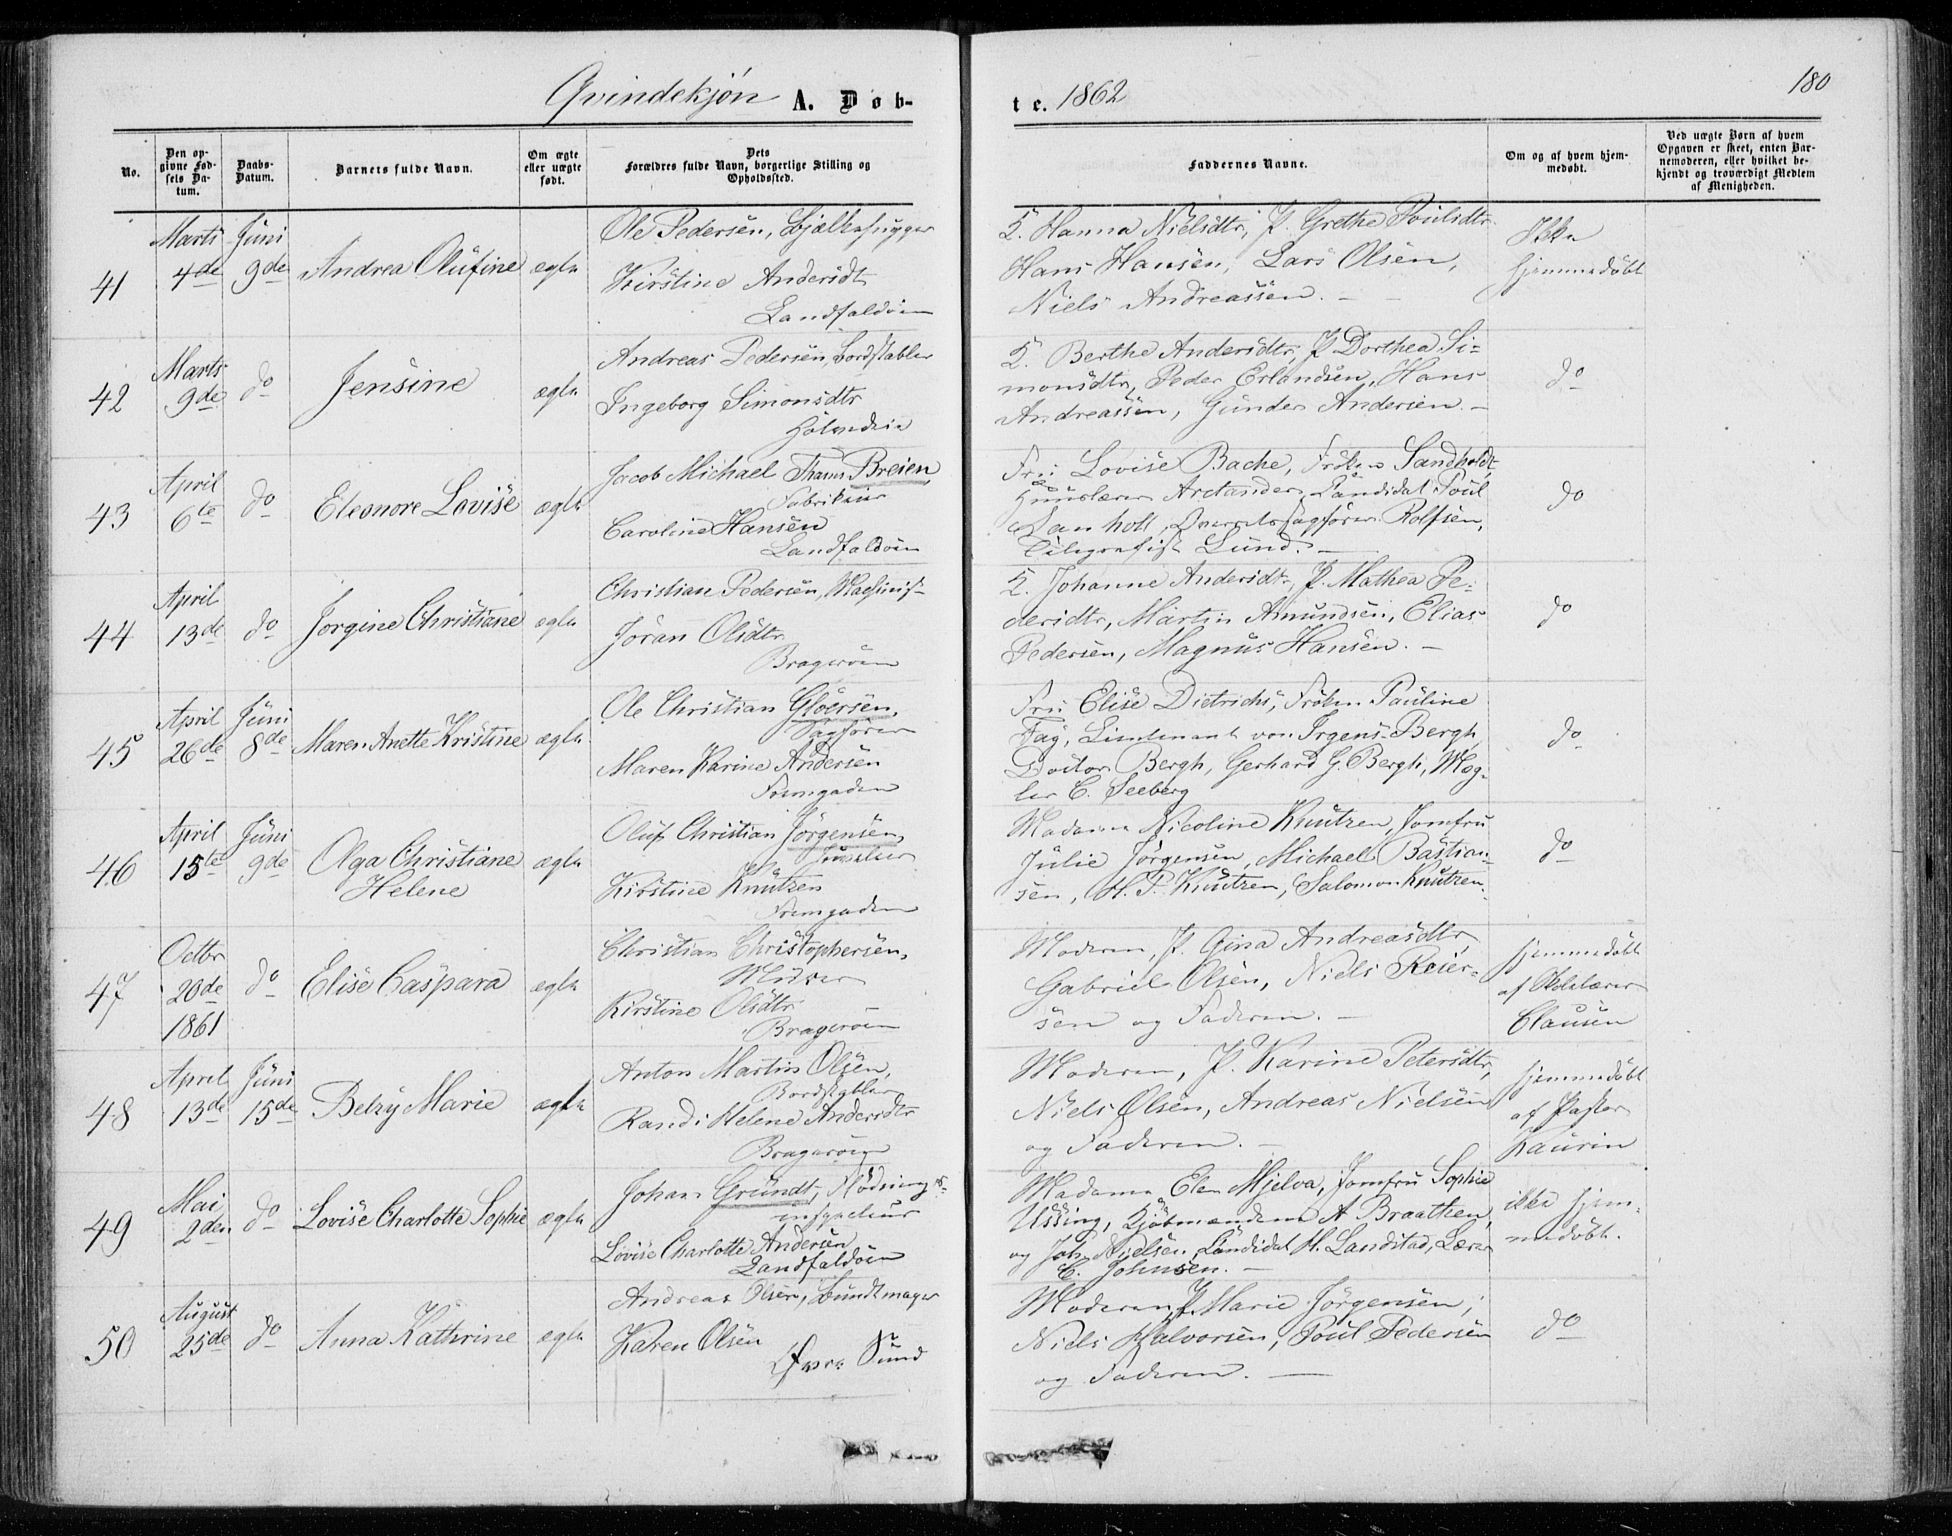 Qvindekjøn A. Døb-
te. 1862
180
No.
Den op-
givne Fød-
sels Da-
tum.
Daabs-
Datum.
Barnets fulde Navn.
Om ægte
eller uægte
født.
Dets
Forældres fulde Navn, borgerlige Stilling og
Opholdssted.
Faddernes Navne.
Om og af hvem hjem-
medøbt.
Ved uægte Børn af hvem
Opgaven er skeet, enten Bar-
nemoderen, eller hvilket be-
kjendt og troværdigt Medlem
af Menigheden.
41
Marts
4de
Juni
9de
Andrea Olufine
ægte
Ole Pedersen, Bjælkehugger
Kirstine Andersdt
Landfaldøen
K. Hanna Nielsdtr, P. Grethe Poulsdtr
Hans Hansen, Lars Olsen,
Niels Andreassen. –
Ikke
hjemmedøbt
42
Marts
9de
do
Jensine
ægte
Andreas Pedersen, Bordstabler
Ingeborg Simonsdtr
K. Berthe Andersdtr, P. Dorthea Si-
monsdtr, Peder Erlandsen, Hans
Andreassen, Gunder Andersen. –
do
43
April
6te
do
Eleonore Lovise
ægte
Jacob Michael Thams Breien
Fabrikeier
Caroline Hansen
Landfaldøen
Fru Lovise Bache, Frøken Sandholdt,
Huuslærer Arctander, Candidat Poul
Overretssagfører Rolfsen,
Telegrafist Lund. –
do
44
April
13de
do
Jorgine Christiane
ægte
Christian Pedersen, Maskinist
Jöran Olsdtr
Bragerøen
K. Johanne Andersdtr, P. Mathea Pe-
dersdtr, Martin Amundsen, Elias
Pedersen, Magnus Hansen. –
do
45
April
26de
Juni
8de
Maren Anette Kristine
ægte
Ole Christian Gløersen,
Sagfører
Maren Karine Andersen
Strømgaden
Fru Elise Dietrichs, Frøken Pauline
Fag, Lieutenant von Irgens-Bergh,
Doctor Bergh, Gerhard G. Bergh, Mæg-
ler C. Seeberg
do
46
April
15te
Juni
9de
Olga Christiane
Helene
ægte
Oluf Christian Jørgensen,
Juveleer
Kirstine Knutzen
Strømgaden
Madame Nicoline Knutzen, Jomfru
Julie Jørgensen, Michael Bastian-
sen, H. P. Knutzen, Salomon Knutzen.
do
47
Octbr
20de
1861
do
Elise Caspara
ægte
Christian Christophersen,
Murer
Kirstine Olsdtr
Bragerøen
Moderen, P. Gina Andreasdtr,
Gabriel Olsen, Niels Reier-
sen og Faderen. –
hjemmedøbt
af Skolelærer
Clausen
48
April
13de
Juni
15de
Betzy Marie
ægte
Anton Martin Olsen,
Bordstabler
Randi Helene Andersdtr
Bragerøen
Moderen, P. Karine Petersdtr,
Niels Olsen, Andreas Nielsen
og Faderen. –
hjemmedøbt
af Pastor
Kaurin
49
Mai
2den
do
Lovise Charlotte Sophie
ægte
Johan Gründt, Flødnings-
inspecteur
Lovise Charlotte Andersen
Landfaldøen
Madame Elen Mjelva, Jomfru Sophie
Ussing, Kjøbmændene A Braathen,
og Joh. Nielsen, Candidat H. Landstad, Lærer
C. Johnsen. –
ikke hjem-
medøbt.
50
August
25de
do
Anna Kathrine
ægte
Andreas Olsen, Bundtmager
Karen Olsen
Øvre Sund
Moderen, P. Marie Jörgensen,
Niels Halvorsen, Poul Pedersen
og Faderen. –
do